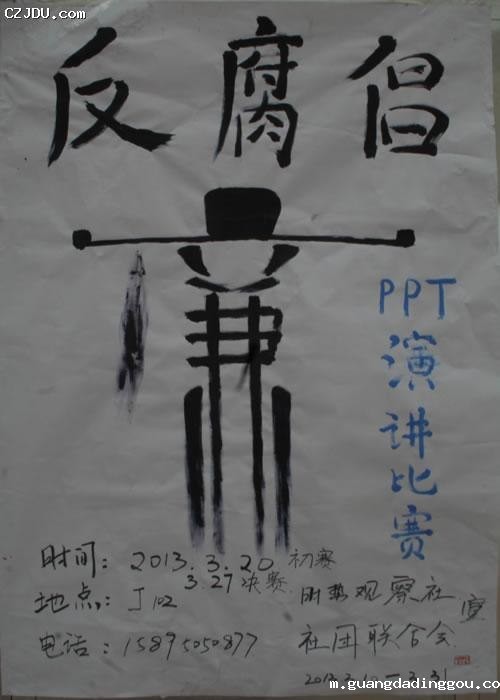 CZJDU.com
反腐倡
廉
PPT
演讲比赛
时间：2013.3.20 初赛
3.27 决赛
地点：J102
电话：15895050877
时势观察社
社团联合会
宣
2013.3.10—3.31
m.guangdadinggou.co